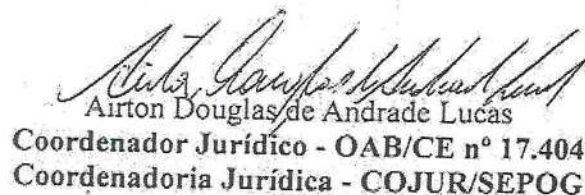 Airton Douglas de Andrade Lucas
Coordenador Jurídico - OAB/CE nº 17.404
Coordenadoria Jurídica - COJUR/SEPOG